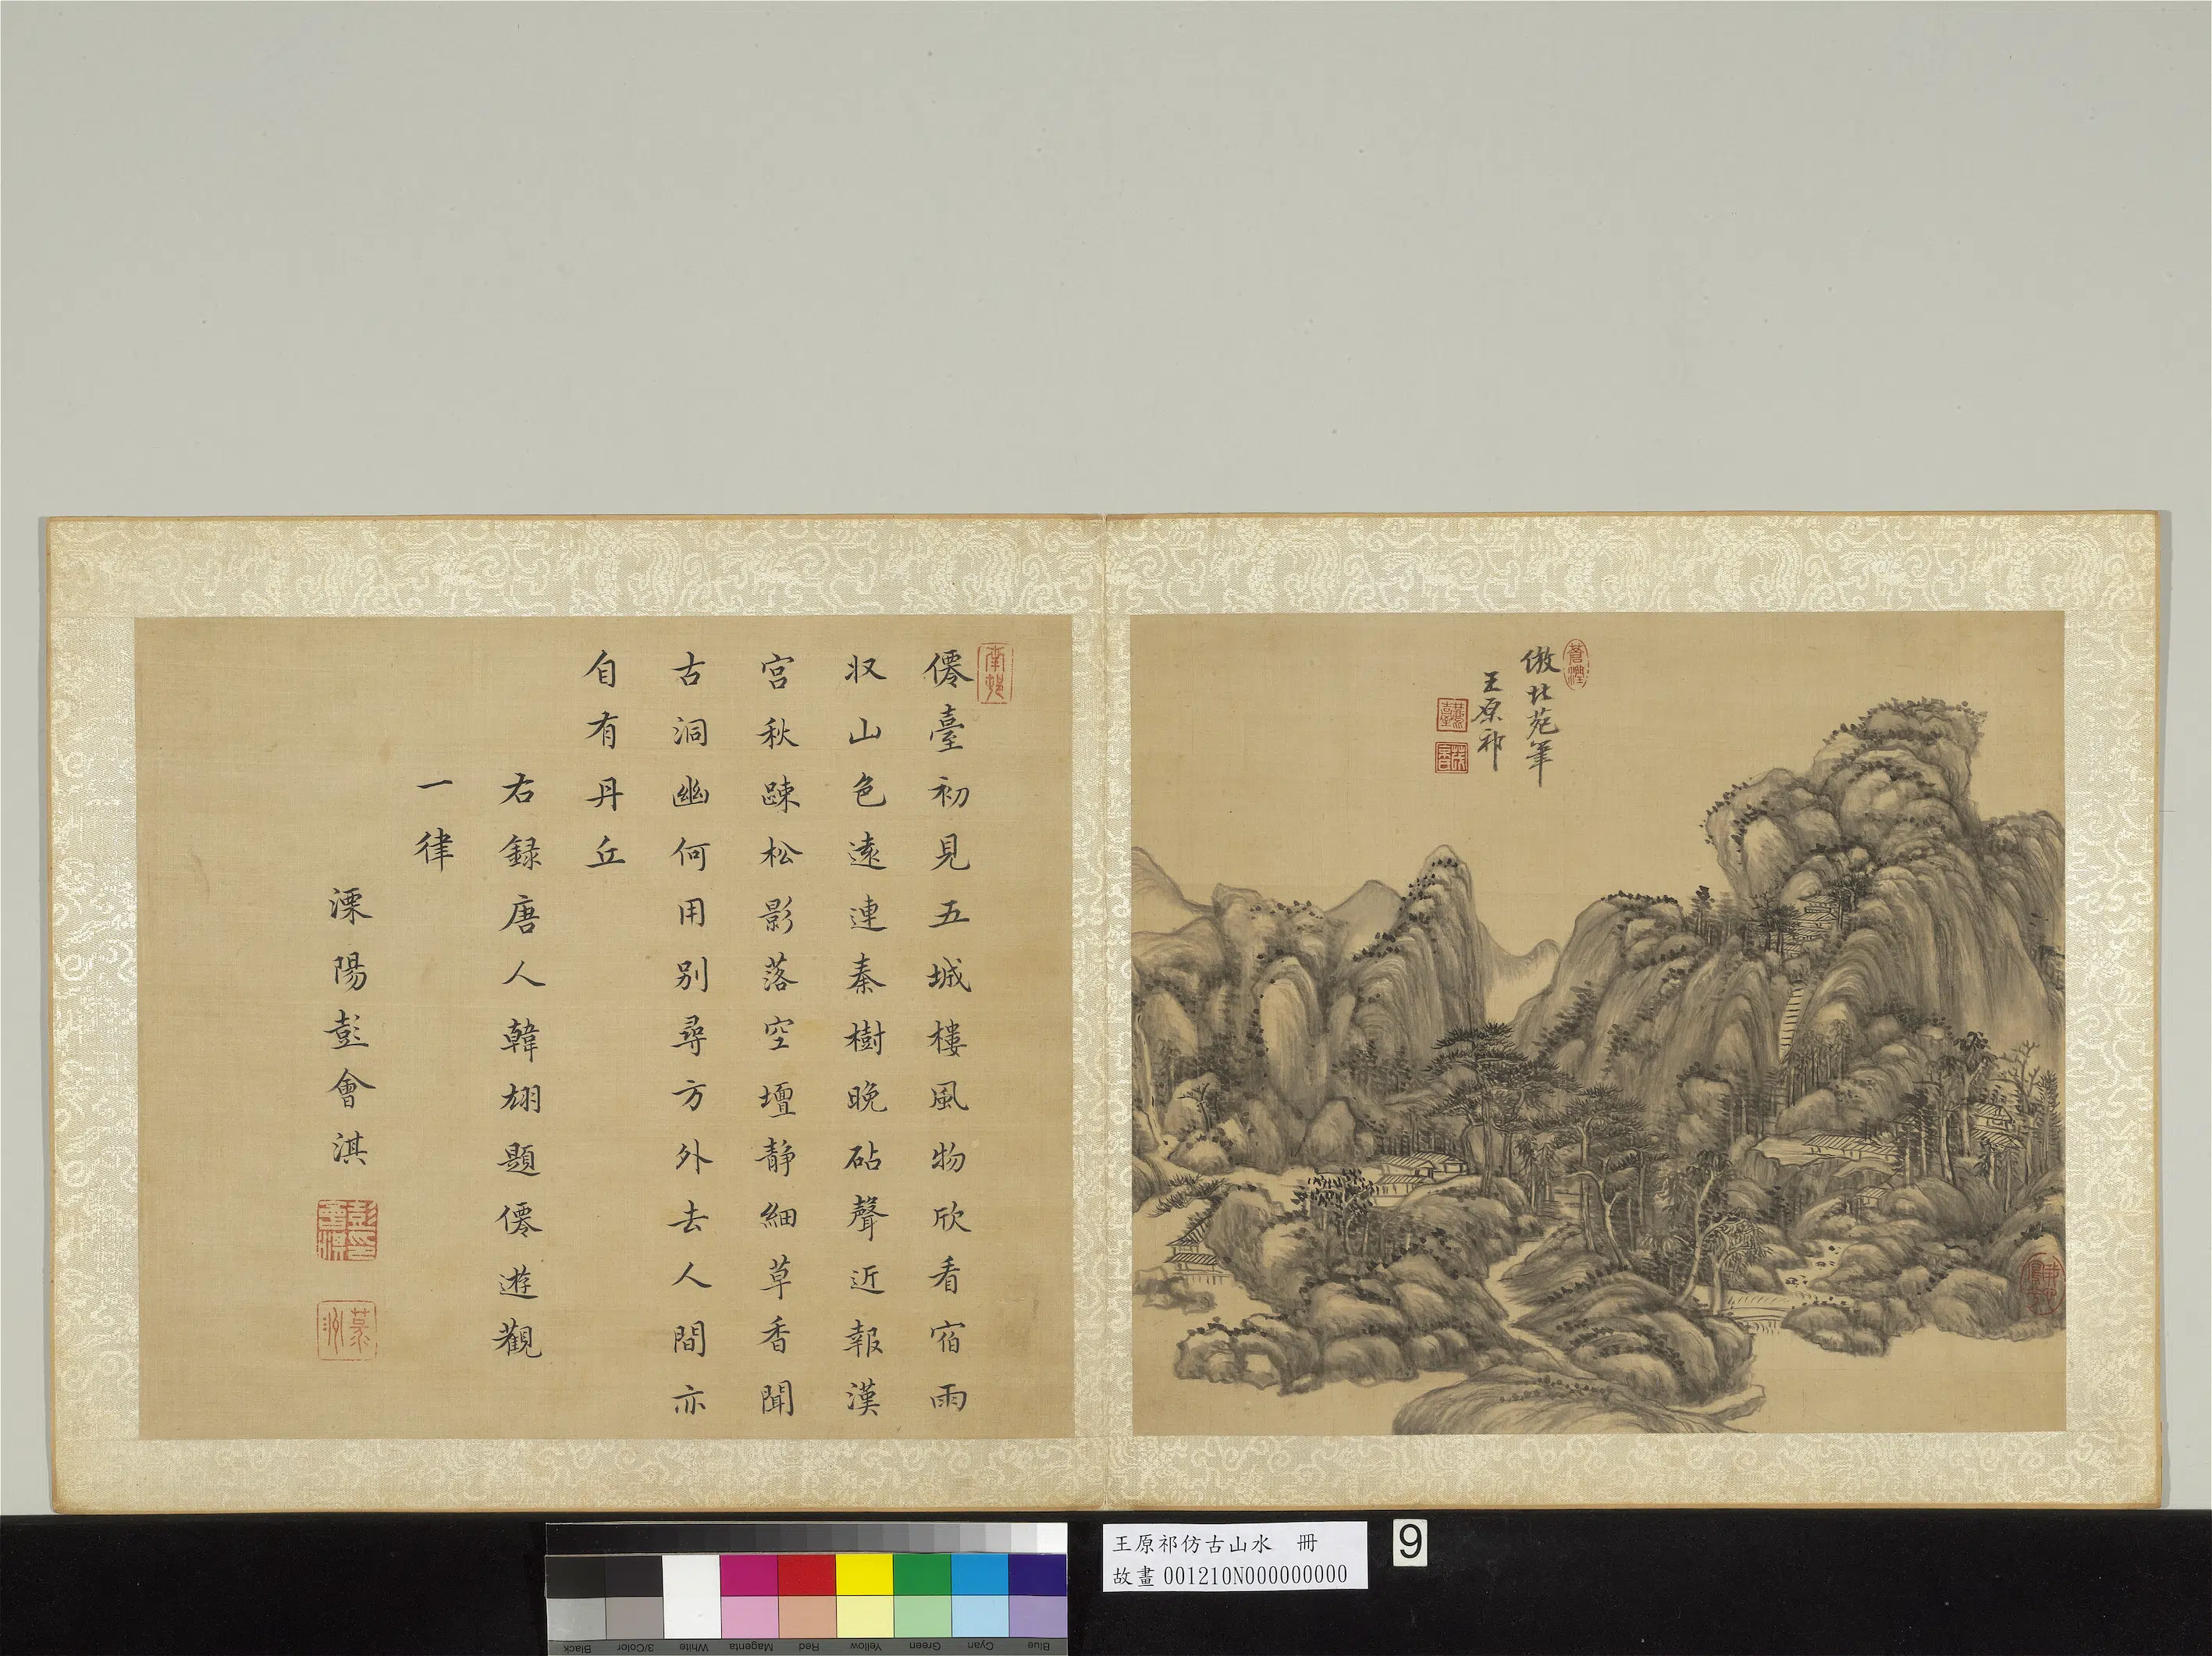 倣北苑筆
王原祁
僊臺初見五城樓風物欣看宿雨
収山色遠連秦樹晚砧聲近報漢
宮秋踈松影落空壇静細草香聞
古洞幽何用别尋方外去人間亦
自有丹丘
右録唐人韓翃題僊遊觀
一律
溧陽彭會淇
王原祁仿古山水 冊
故畫 001210N000000000
9
Black
3/Color
White
Magenta
Red
Yellow
Green
Cyan
Blue